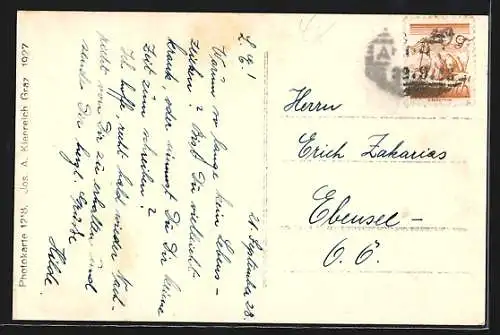 L. E.!
21. September 28.
Warum so lange kein Lebens-
zeichen? Bist Du vielleicht
krank, oder nimmst Du Dir keine
Zeit zum schreiben?
Ich hoffe, recht bald wieder Nach-
richt von Dir zu erhalten und
sende Dir herzl. Grüsse
Hilde.
Herrn
Erich Zakarias
Ebensee -
O. Ö.
Photokarte 1218, Jos. A. Kienreich Graz 1927